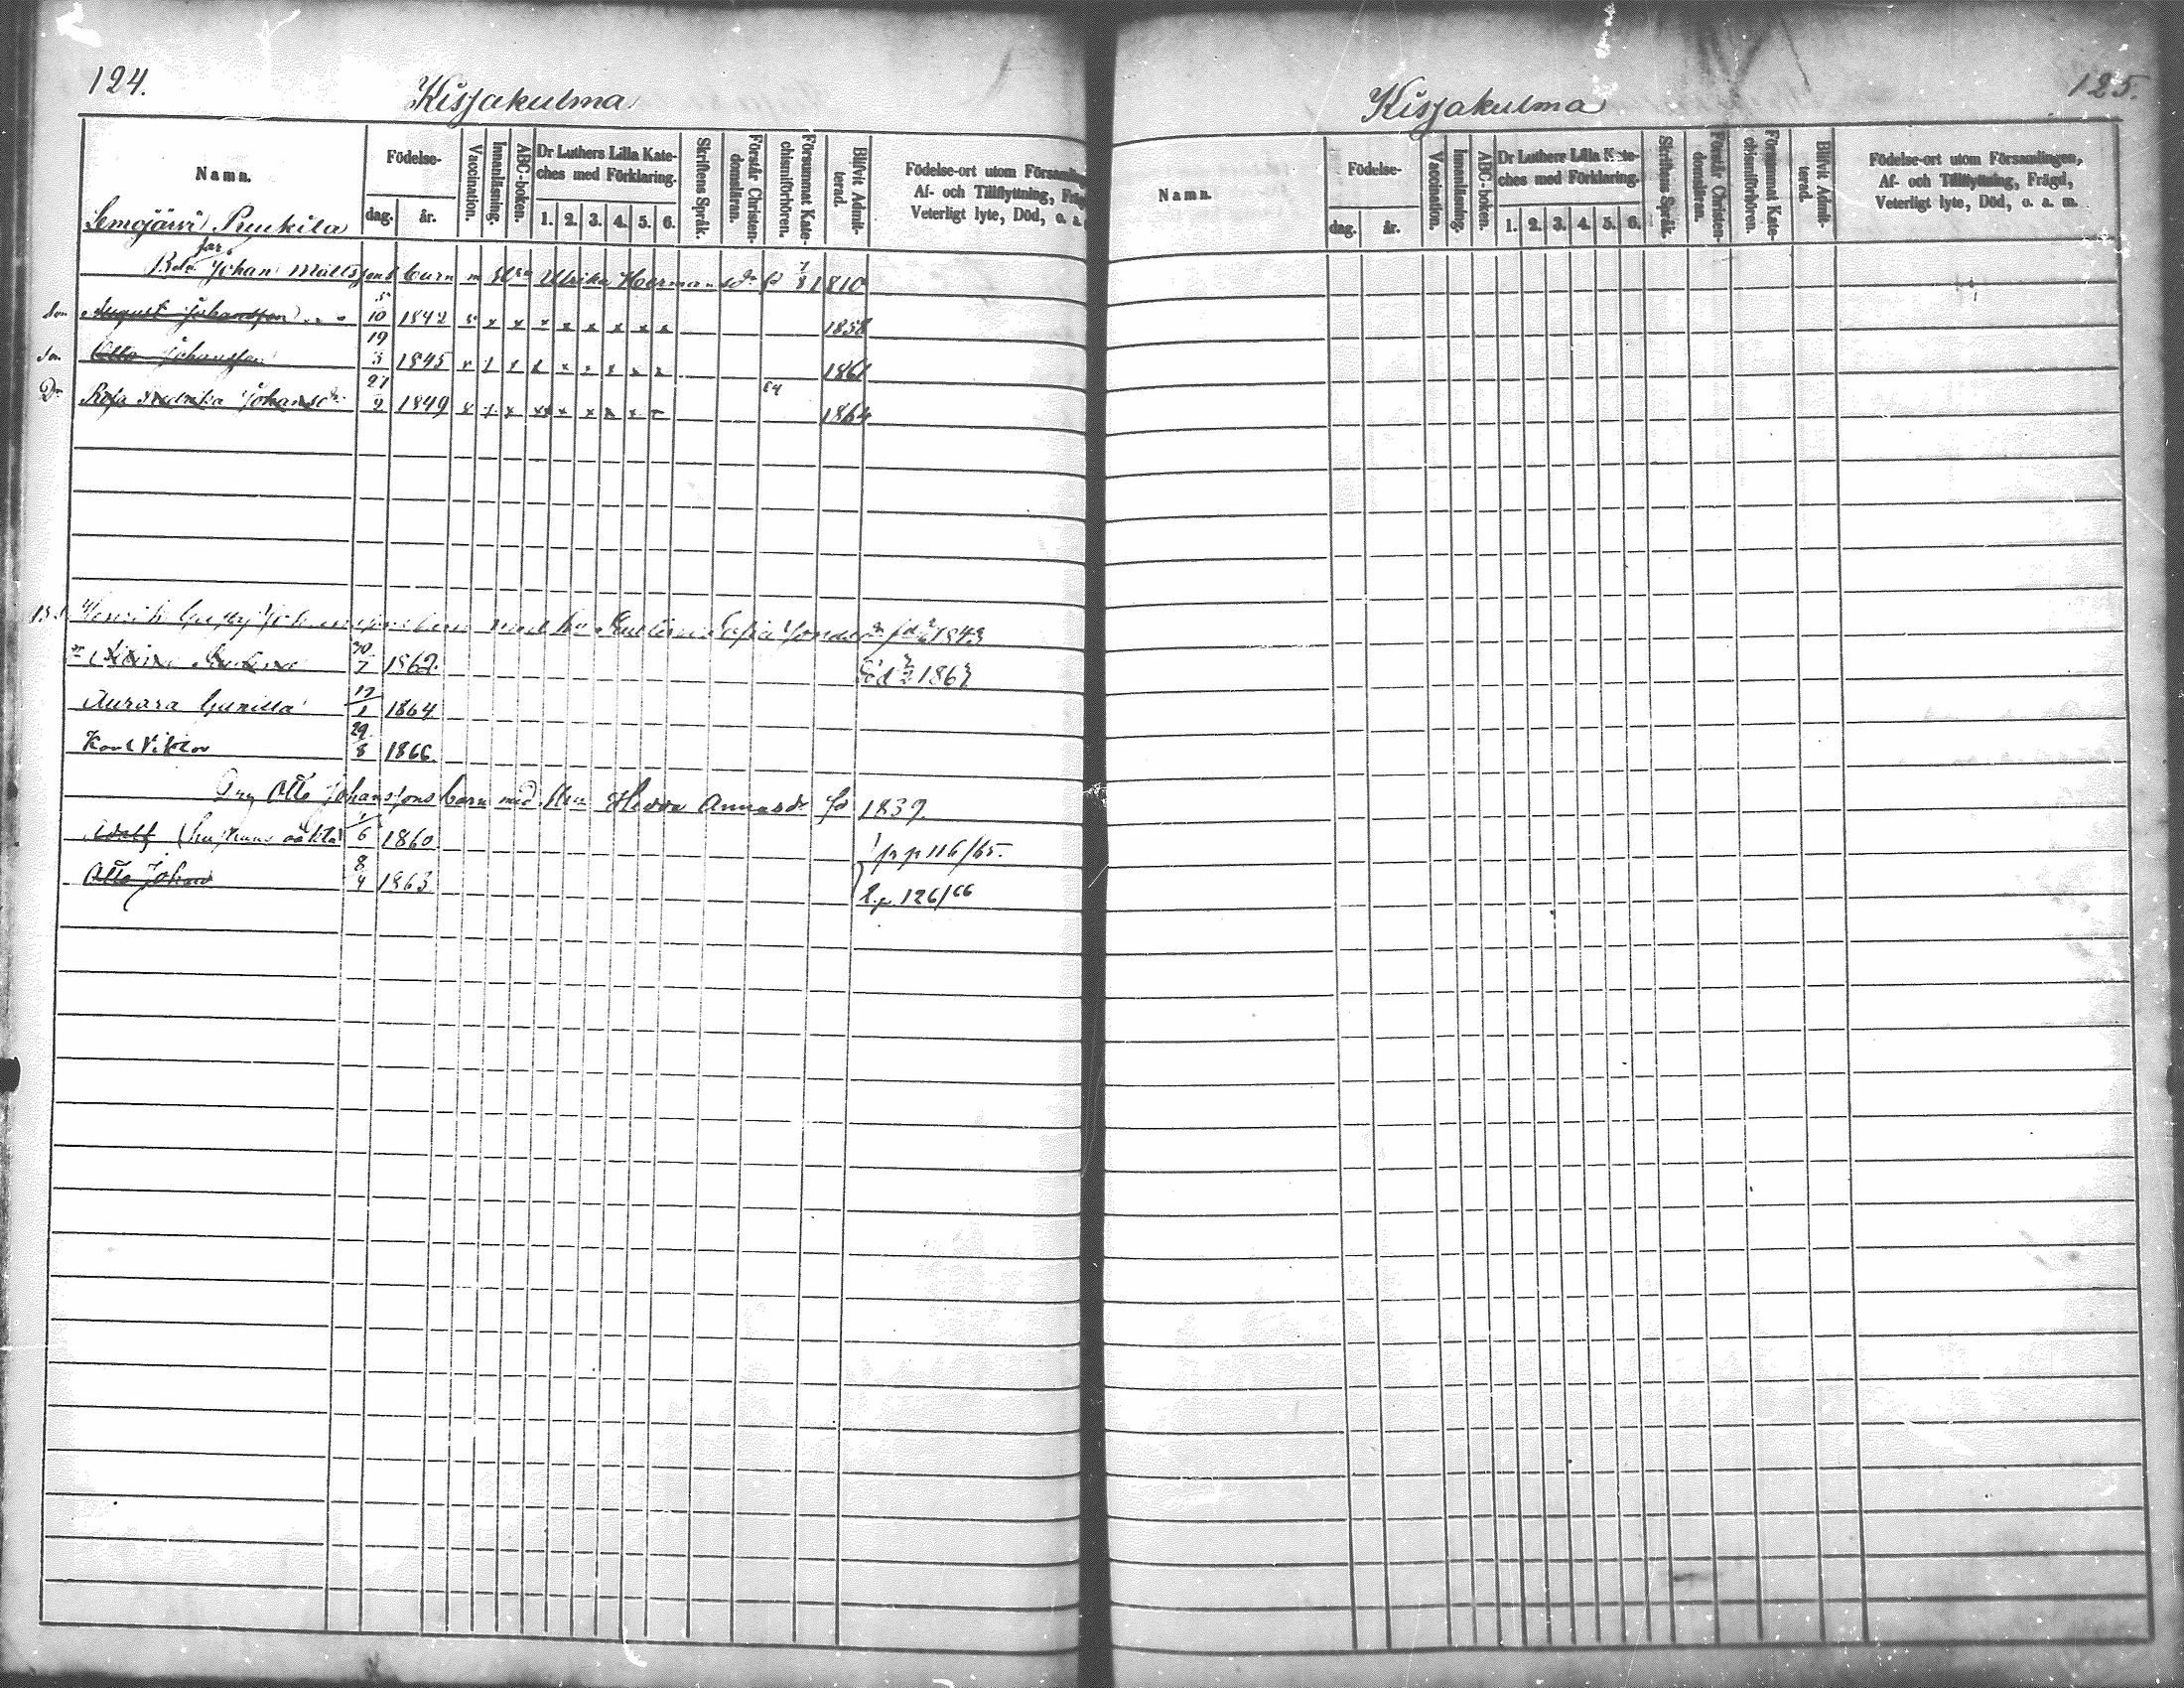 124.
Kisjakulma
Namn.
Födelse-
dag.
år.
Vaccination.
Innanläsning.
ABC-boken.
Dr Luthers Lilla Kate-
ches med Förklaring.
1. 2. 3. 4. 5. 6.
Skriftens Språk.
Förstår Christen-
domsläran.
Försummat Kate-
chismiförhören.
Blifvit Admit-
terad.
Födelse-ort utom Församling
Af- och Tillflyttning, Fräg
Veterligt lyte, Död, o. a.
Semojärvi Puukila
Johan Mattssons barn m Ulrika Hermansdr fd 1/8 1810
Son August Johansson 5/10 1842 1858
Son Otto Johansson 19/3 1845 1861
Dr Rosa Fredrika Johansdr 21/2 1849 64 1864
Henrik barn med hu Sofia fd 1843
20/7 1862. Död 1867
Aurora Gunilla 17/1 1864
Karl Viktor 29/8 1866.
Otto Johanssons barn med Hedda Annasdr fd 1839.
Adolf (hustruns oäkta) 1/6 1860 fr p 116/65.
Otto Johan 8/4 1863 t. p. 126/66
125.
Kisjakulma
Namn.
Födelse-
dag.
år.
Vaccination.
Innanläsning.
ABC-boken.
Dr Luthers Lilla Kate-
ches med Förklaring.
1. 2. 3. 4. 5. 6.
Skriftens Språk.
Förstår Christen-
domsläran.
Försummat Kate-
chismiförhören.
Blifvit Admit-
terad.
Födelse-ort utom Församlingen,
Af- och Tillflyttning, Frägd,
Veterligt lyte, Död, o. a. m.